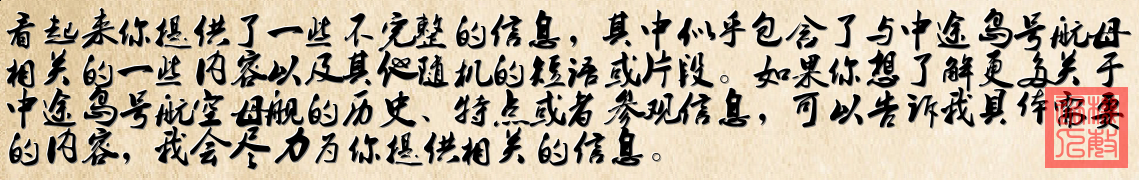 看起来你提供了一些不完整的信息，其中似乎包含了与中途岛号航母
相关的一些内容以及其他随机的短语或片段。如果你想了解更多关于
中途岛号航空母舰的历史、特点或者参观信息，可以告诉我具体需要
的内容，我会尽力为你提供相关的信息。